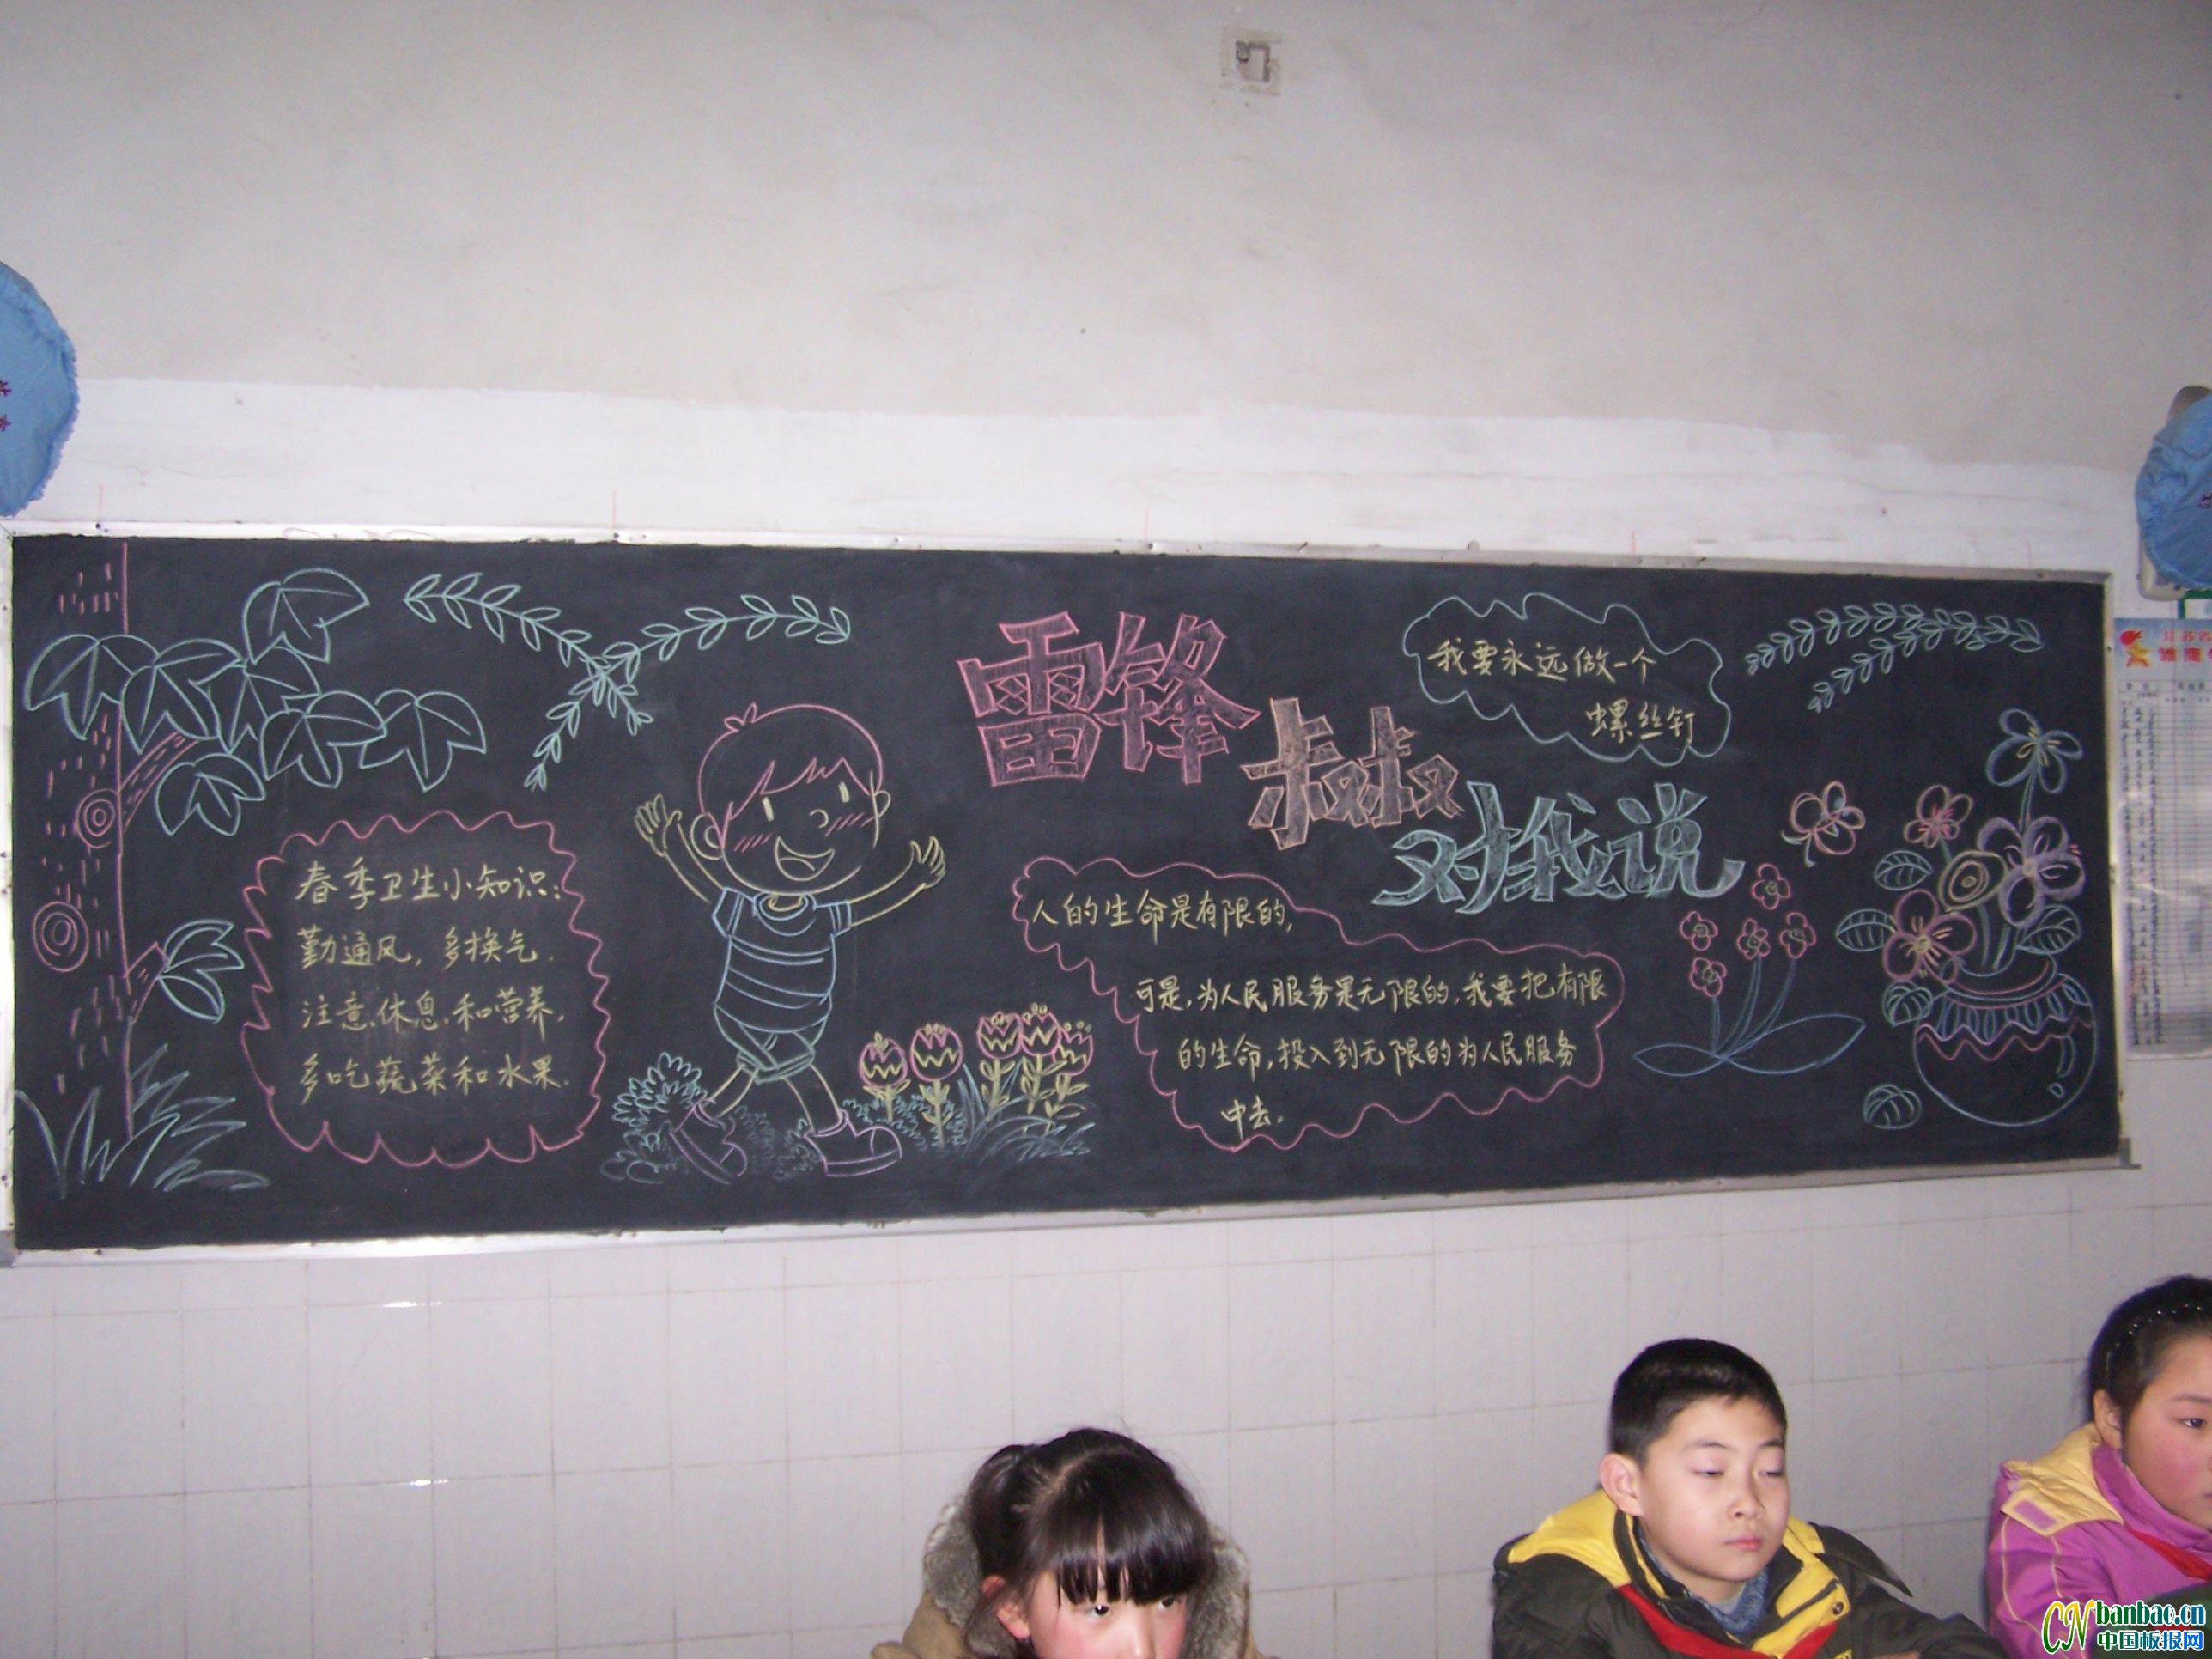 雷锋
叔叔
对我说
我要永远做一个
螺丝钉
春季卫生小知识：
勤通风，多换气.
注意休息和营养,
多吃蔬菜和水果.
人的生命是有限的,
可是,为人民服务是无限的,我要把有限
的生命,投入到无限的为人民服务
中去.
江苏省
雏鹰
CN banbao.cn
中国板报网